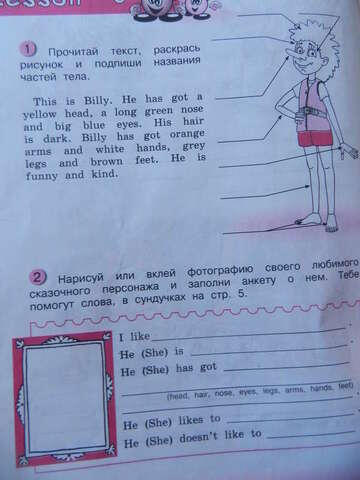 Lesson
1 Прочитай текст, раскрась
рисунок и подпиши названия
частей тела.
This is Billy. He has got a
yellow head, a long green nose
and big blue eyes. His hair
is dark. Billy has got orange
arms and white hands, grey
legs and brown feet. He is
funny and kind.
2 Нарисуй или вклей фотографию своего любимого
сказочного персонажа и заполни анкету о нем. Тебе
помогут слова, в сундучках на стр. 5.
I like
He (She) is
He (She) has got
(head, hair, nose, eyes, legs, arms, hands, feet)
He (She) likes to
He (She) doesn't like to